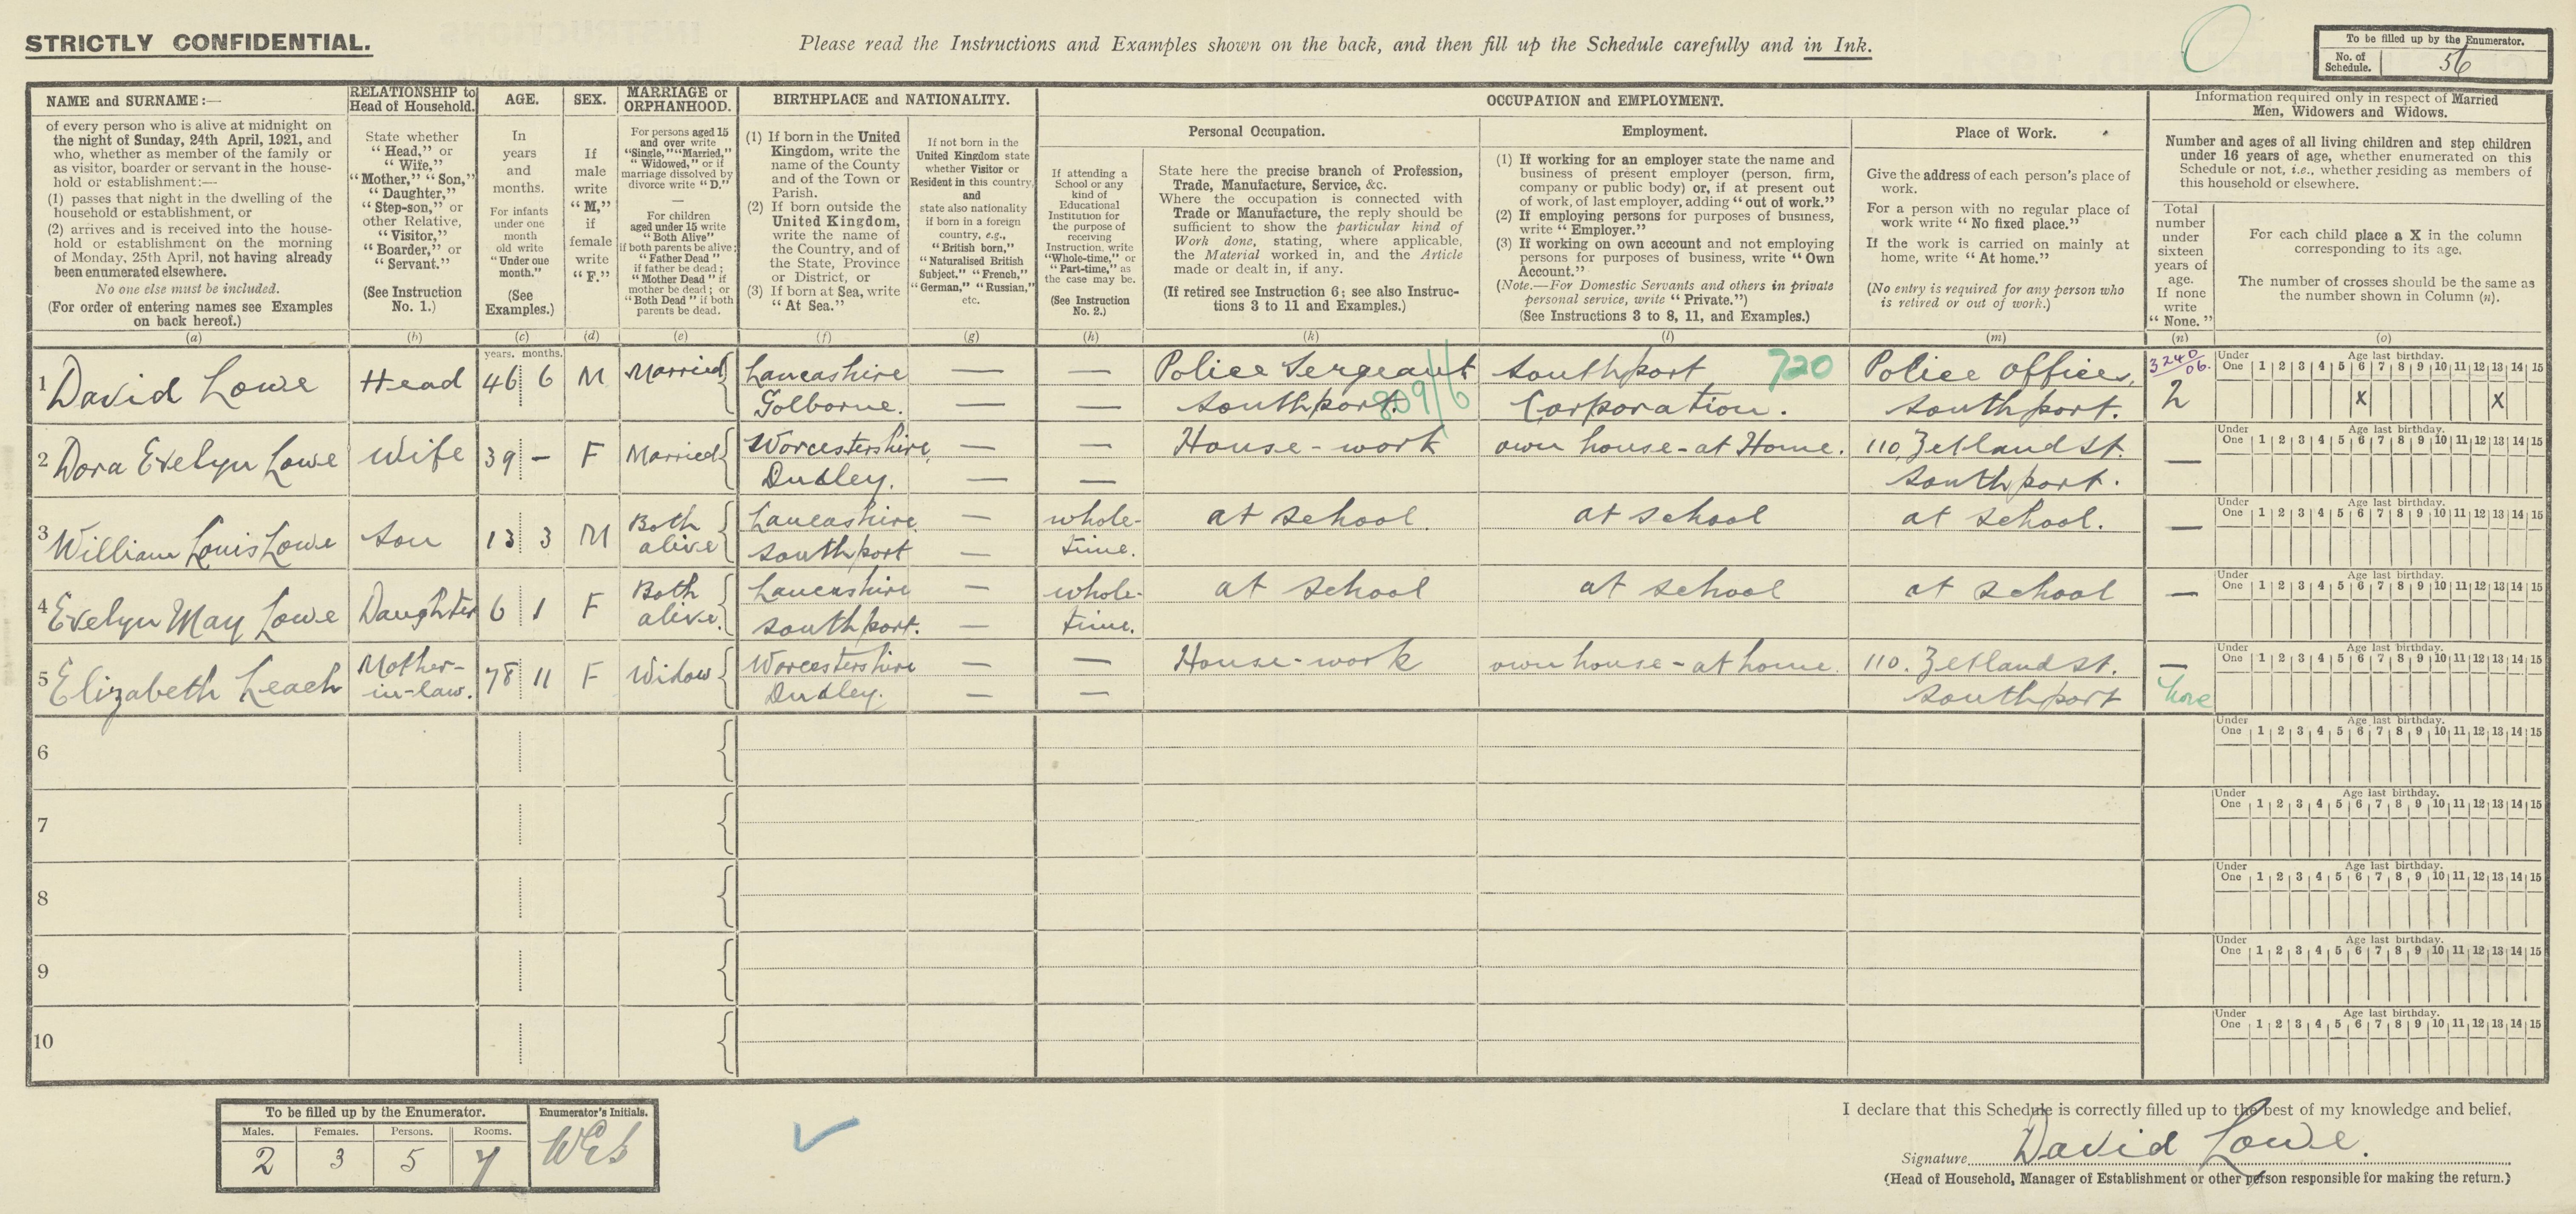 STRICTLY CONFIDENTIAL.
Please read the Instructions and Examples shown on the back, and then fill up the Schedule carefully and in Ink.
To be filled up by the Enumerator.
No. of Schedule. 56
NAME and SURNAME:—
of every person who is alive at midnight on
the night of Sunday, 24th April, 1921, and
who, whether as member of the family or
as visitor, boarder or servant in the house-
hold or establishment:—
(1) passes that night in the dwelling of the
household or establishment, or
(2) arrives and is received into the house-
hold or establishment on the morning
of Monday, 25th April, not having already
been enumerated elsewhere.
No one else must be included.
(For order of entering names see Examples
on back hereof.)
(a)
RELATIONSHIP to
Head of Household.
State whether
"Head," or
"Wife,"
"Mother," "Son,"
"Daughter,"
"Step-son," or
other Relative,
"Visitor,"
"Boarder," or
"Servant."
(See Instruction
No. 1.)
(b)
AGE.
In
years
and
months.
For infants
under one
month
old write
"Under one
month."
(See
Examples.)
(c)
SEX.
If
male
write
"M,"
if
female
write
"F."
(d)
MARRIAGE or
ORPHANHOOD.
For persons aged 15
and over write
"Single," "Married,"
"Widowed," or if
marriage dissolved by
divorce write "D."
—
For children
aged under 15 write
"Both Alive"
if both parents be alive;
"Father Dead"
if father be dead;
"Mother Dead" if
mother be dead; or
"Both Dead" if both
parents be dead.
(e)
BIRTHPLACE and NATIONALITY.
(1) If born in the United
Kingdom, write the
name of the County
and of the Town or
Parish.
(2) If born outside the
United Kingdom,
write the name of
the Country, and of
the State, Province
or District, or
(3) If born at Sea, write
"At Sea."
(f)
If not born in the
United Kingdom state
whether Visitor or
Resident in this country,
and
state also nationality
if born in a foreign
country, e.g.,
"British born,"
"Naturalised British
Subject." "French,"
"German," "Russian,"
etc.
(g)
OCCUPATION and EMPLOYMENT.
If attending a
School or any
kind of
Educational
Institution for
the purpose of
receiving
Instruction, write
"Whole-time," or
"Part-time," as
the case may be.
(See Instruction
No. 2.)
(h)
Personal Occupation.
State here the precise branch of Profession,
Trade, Manufacture, Service, &c.
Where the occupation is connected with
Trade or Manufacture, the reply should be
sufficient to show the particular kind of
Work done, stating, where applicable,
the Material worked in, and the Article
made or dealt in, if any.
(If retired see Instruction 6; see also Instruc-
tions 3 to 11 and Examples.)
(k)
Employment.
(1) If working for an employer state the name and
business of present employer (person, firm,
company or public body) or, if at present out
of work, of last employer, adding "out of work."
(2) If employing persons for purposes of business,
write "Employer."
(3) If working on own account and not employing
persons for purposes of business, write "Own
Account."
(Note.—For Domestic Servants and others in private
personal service, write "Private.")
(See Instructions 3 to 8, 11, and Examples.)
(l)
Place of Work.
Give the address of each person's place of
work.
For a person with no regular place of
work write "No fixed place."
If the work is carried on mainly at
home, write "At home."
(No entry is required for any person who
is retired or out of work.)
(m)
Information required only in respect of Married
Men, Widowers and Widows.
Number and ages of all living children and step children
under 16 years of age, whether enumerated on this
Schedule or not, i.e., whether residing as members of
this household or elsewhere.
Total
number
under
sixteen
years of
age.
If none
write
"None."
(n)
For each child place a X in the column
corresponding to its age.
The number of crosses should be the same as
the number shown in Column (n).
(o)
years. months.
1 David Lowe Head 46 6 M Married Lancashire — — Police Sergeant Southport 720 Police Office, 3240/06.
Golborne. — — Southport. 809/6 Corporation. Southport. 2 X X
Under One Age last birthday. 1 2 3 4 5 6 7 8 9 10 11 12 13 14 15
2 Dora Evelyn Lowe Wife 39 – F Married Worcestershire, — — House-work own house - at Home. 110, Zetland St. —
Dudley. — — Southport.
Under One Age last birthday. 1 2 3 4 5 6 7 8 9 10 11 12 13 14 15
3 William Louis Lowe Son 13 3 M Both Lancashire — whole- at school. at school at school. —
alive Southport — time.
Under One Age last birthday. 1 2 3 4 5 6 7 8 9 10 11 12 13 14 15
4 Evelyn May Lowe Daughter 6 1 F Both Lancashire — whole- at school at school at school —
alive. Southport. — time.
Under One Age last birthday. 1 2 3 4 5 6 7 8 9 10 11 12 13 14 15
5 Elizabeth Leach Mother- 78 11 F Widow Worcestershire — — House-work own house - at home. 110. Zetland St. —
in-law. Dudley. — — Southport None
Under One Age last birthday. 1 2 3 4 5 6 7 8 9 10 11 12 13 14 15
6
Under One Age last birthday. 1 2 3 4 5 6 7 8 9 10 11 12 13 14 15
7
Under One Age last birthday. 1 2 3 4 5 6 7 8 9 10 11 12 13 14 15
8
Under One Age last birthday. 1 2 3 4 5 6 7 8 9 10 11 12 13 14 15
9
Under One Age last birthday. 1 2 3 4 5 6 7 8 9 10 11 12 13 14 15
10
Under One Age last birthday. 1 2 3 4 5 6 7 8 9 10 11 12 13 14 15
To be filled up by the Enumerator. Enumerator's Initials.
Males. Females. Persons. Rooms.
2 3 5 7
I declare that this Schedule is correctly filled up to the best of my knowledge and belief.
Signature David Lowe.
(Head of Household, Manager of Establishment or other person responsible for making the return.)